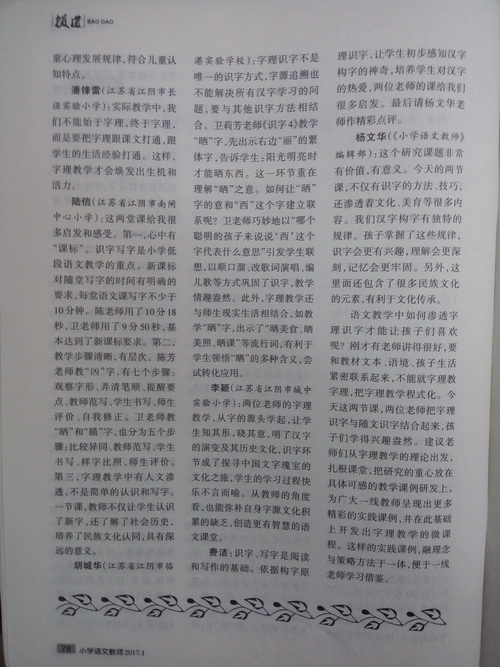 报道 BAO DAO
童心理发展规律，符合儿童认
知特点。
潘锋雷（江苏省江阴市长
泾实验小学）：实际教学中，我
们不能始于字理，终于字理，
而是要把字理跟课文打通，跟
学生的生活经验打通。这样，
字理教学才会焕发出生机和
活力。
陆信（江苏省江阴市南闸
中心小学）：这两堂课给我很
多启发和感受。第一，心中有
“课标”。识字写字是小学低
段语文教学的重点。新课标
对随堂写字的时间有明确的
要求，每堂语文课写字不少于
10分钟。陈老师用了10分18
秒，卫老师用了9分50秒，基
本达到了新课标要求。第二，
教学步骤清晰，有层次。陈芳
老师教“凶”字，有七个步骤：
观察字形、弄清笔顺、提醒要
点、教师范写、学生书写、师生
评价、自我修正。卫老师教
“晒”和“瞄”字，也分为五个步
骤：比较异同、教师范写、学生
书写、样字比照、师生评价。
第三，字理教学中有人文渗
透，不是简单的认识和写字。
一节课，教师不仅让学生认识
了新字，还了解了社会历史，
培养了民族文化认同，具有深
远的意义。
胡城华（江苏省江阴市临
港实验学校）：字理识字不是
唯一的识字方式，字源追溯也
不能解决所有汉字学习的问
题，要与其他识字方法相结
合。卫莉芳老师《识字4》教学
“晒”字，先出示右边“丽”的繁
体字，告诉学生：阳光明亮时
才能晒东西。这一环节重在
理解“晒”之意。如何让“晒”
字的意和“西”这个字建立联
系呢？卫老师巧妙地以“哪个
聪明的孩子来说说‘西’这个
字代表什么意思”引发学生联
想，以顺口溜、改歌词演唱、编
儿歌等方式巩固了识字，教学
情趣盎然。此外，字理教学还
与师生现实生活相结合，如教
学“晒”字，出示了“晒美食、晒
美照、晒课”等流行词，有利于
学生领悟“晒”的多种含义，尝
试转化应用。
李颖（江苏省江阴市城中
实验小学）：两位老师的字理
教学，从字的源头学起，让学
生知其形，晓其意，明了汉字
的演变及其历史文化，识字环
节成了探寻中国文字瑰宝的
文化之旅，学生的学习过程快
乐不言而喻。从教师的角度
看，也能弥补自身字源文化积
累的缺乏，创造更有智慧的语
文课堂。
费洁：识字、写字是阅读
和写作的基础。依据构字原
理识字，让学生初步感知汉字
构字的神奇，培养学生对汉字
的热爱，两位老师的课给我们
很多启发。最后请杨文华老
师作精彩点评。
杨文华（《小学语文教师》
编辑部）：这个研究课题非常
有价值，有意义。今天的两节
课，不仅有识字的方法、技巧，
还渗透着文化、美育等很多内
容。我们汉字构字有独特的
规律。孩子掌握了这些规律，
识字会更有兴趣，理解会更深
刻，记忆会更牢固。另外，这
里面还包含了很多民族文化
的元素，有利于文化传承。
语文教学中如何渗透字
理识字才能让孩子们喜欢
呢？刚才有老师讲得很好，要
和教材文本、语境、孩子生活
紧密联系起来，不能就字理教
字理，把字理教学程式化。今
天这两节课，两位老师把字理
识字与随文识字结合起来，孩
子们学得兴趣盎然。建议老
师们从字理教学的理论出发，
扎根课堂，把研究的重心放在
具体可感的教学课例研发上，
为广大一线教师呈现出更多
精彩的实践课例，并在此基础
上开发出字理教学的微课
程。这样的实践课例，融理念
与策略方法于一体，便于一线
老师学习借鉴。
78 小学语文教师2017.1